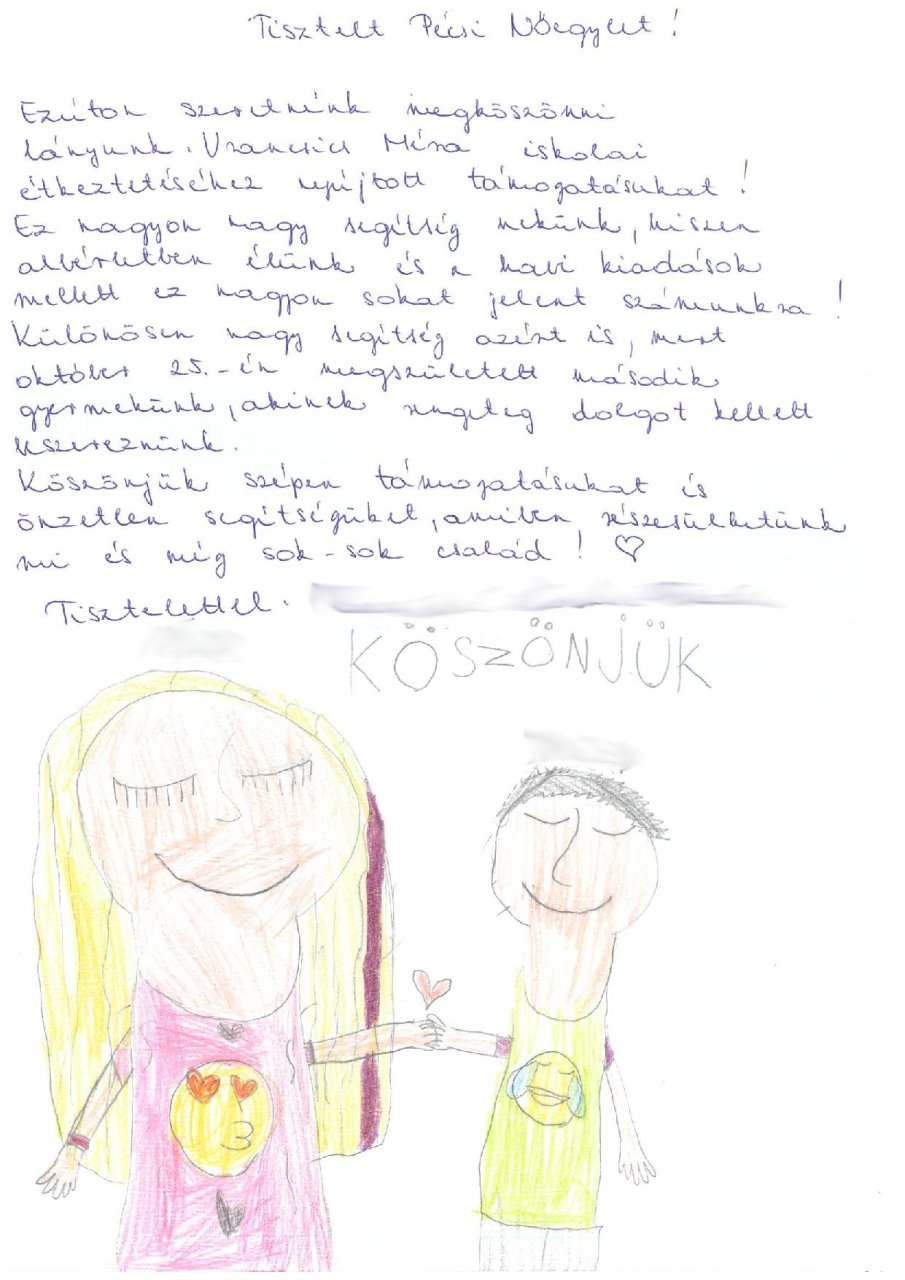 Tisztelt Pécsi Nőegylet!
Ezúton szeretnénk megköszönni
lányunk. Vrancsics Míra iskolai
étkeztetéséhez nyújtott támogatásukat!
Ez nagyon nagy segítség nekünk, hiszen
albérletben élünk és a havi kiadások
mellett ez nagyon sokat jelent számunkra!
Különösen nagy segítség azért is, mert
október 25.-én megszületett második
gyermekünk, akinek rengeteg dolgot kellett
beszereznünk.
Köszönjük szépen támogatásukat és
önzetlen segítségüket, amiben részesülhetünk
mi és még sok-sok család! ♡
Tisztelettel.
KÖSZÖNJÜK